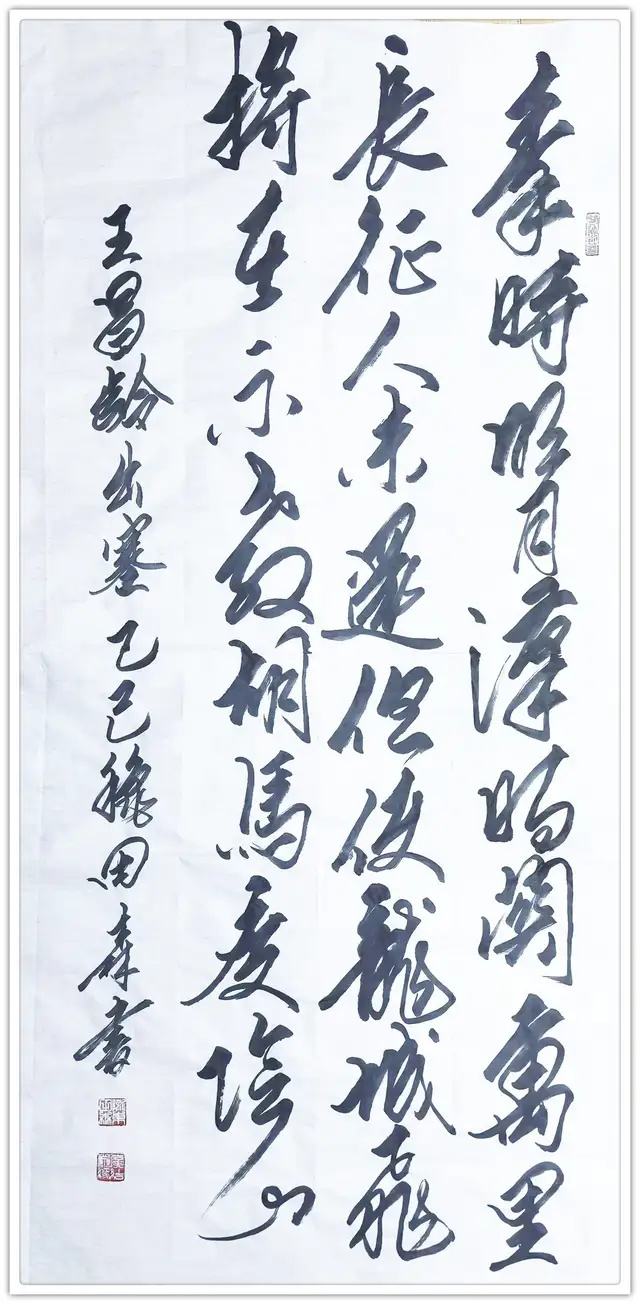 秦時明月漢時關萬里
長征人未還但使龍城飛
將在不教胡馬度陰山
王昌齡出塞乙巳穐田森書